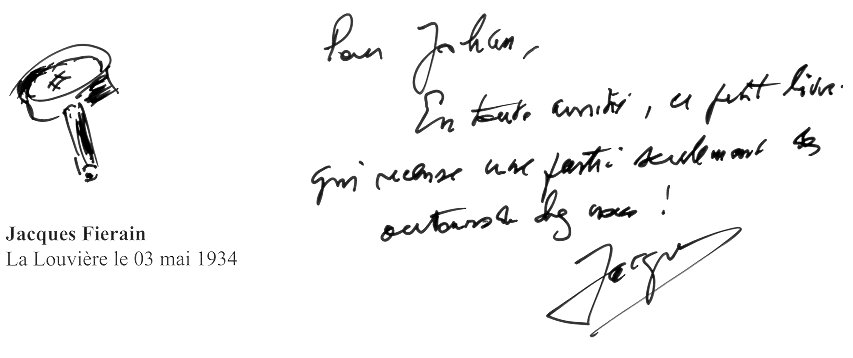 Pour Johan,
En toute amitié, ce petit livre
qui recense une partie seulement des
chez nous !
Jacques
Jacques Fierain
La Louvière le 03 mai 1934